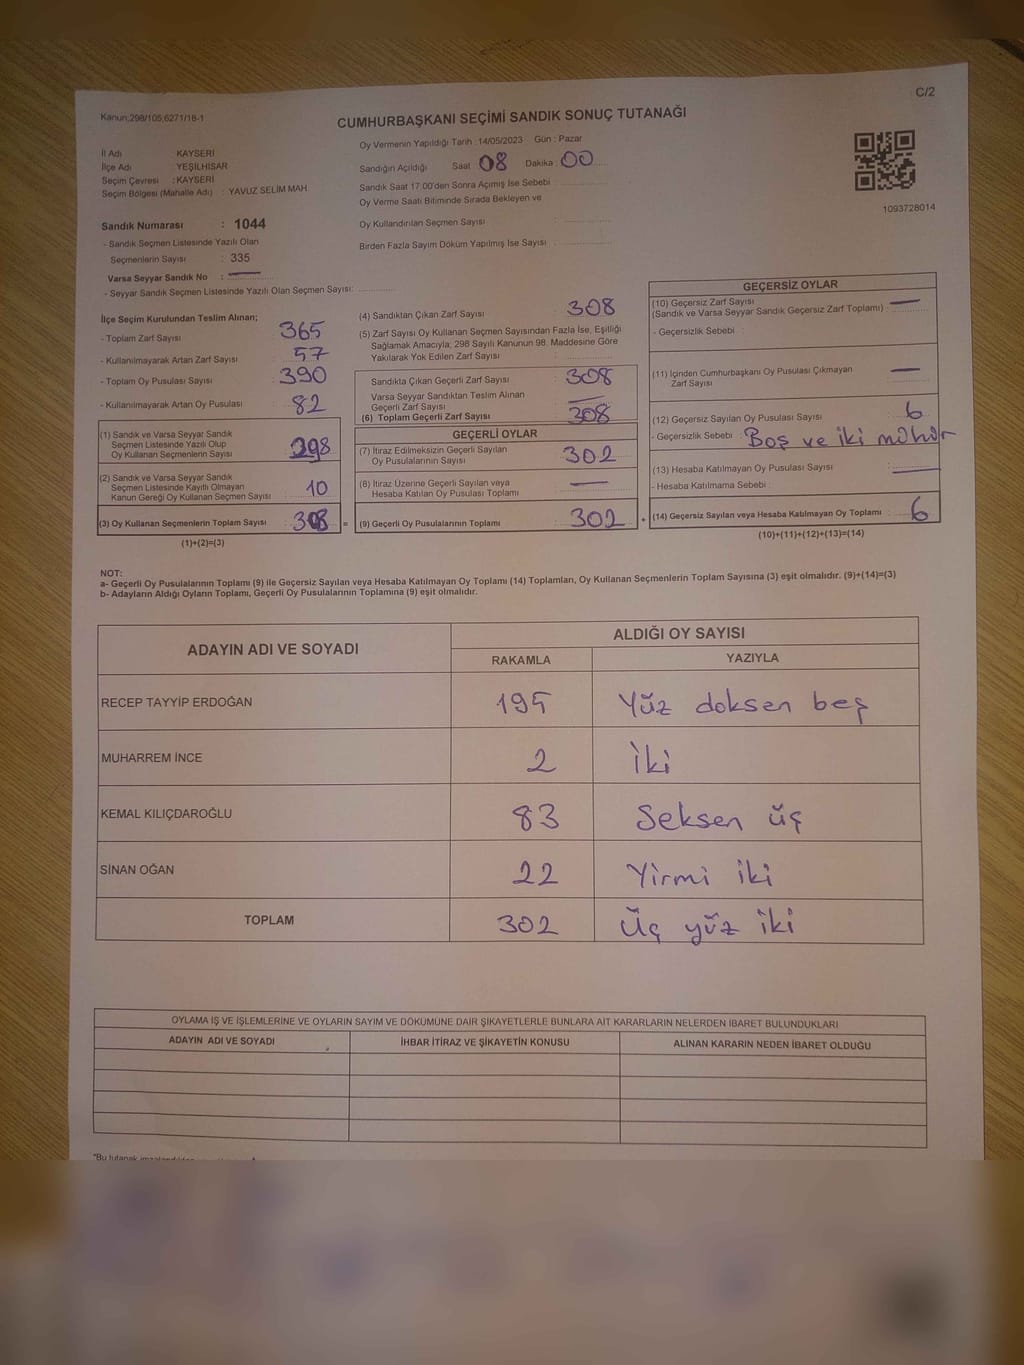 C/2
Kanun;298/105;6271/18-1
CUMHURBAŞKANI SEÇİMİ SANDIK SONUÇ TUTANAĞI
İl Adı KAYSERİ
İlçe Adı YEŞİLHİSAR
Seçim Çevresi : KAYSERİ
Seçim Bölgesi (Mahalle Adı) : YAVUZ SELİM MAH
Sandık Numarası : 1044
- Sandık Seçmen Listesinde Yazılı Olan
Seçmenlerin Sayısı : 335
Varsa Seyyar Sandık No :
- Seyyar Sandık Seçmen Listesinde Yazılı Olan Seçmen Sayısı:
Oy Vermenin Yapıldığı Tarih : 14/05/2023 Gün : Pazar
Sandığın Açıldığı Saat 08 Dakika : 00
Sandık Saat 17.00'den Sonra Açımış İse Sebebi
Oy Verme Saati Bitiminde Sırada Bekleyen ve
Oy Kullandırılan Seçmen Sayısı :
Birden Fazla Sayım Döküm Yapılmış İse Sayısı
1093728014
İlçe Seçim Kurulundan Teslim Alınan;
- Toplam Zarf Sayısı 365
- Kullanılmayarak Artan Zarf Sayısı 57
- Toplam Oy Pusulası Sayısı 390
- Kullanılmayarak Artan Oy Pusulası 82
(1) Sandık ve Varsa Seyyar Sandık
Seçmen Listesinde Yazılı Olup
Oy Kullanan Seçmenlerin Sayısı 298
(2) Sandık ve Varsa Seyyar Sandık
Seçmen Listesinde Kayıtlı Olmayan
Kanun Gereği Oy Kullanan Seçmen Sayısı 10
(3) Oy Kullanan Seçmenlerin Toplam Sayısı 308 =
(1)+(2)=(3)
(4) Sandıktan Çıkan Zarf Sayısı 308
(5) Zarf Sayısı Oy Kullanan Seçmen Sayısından Fazla İse, Eşitliği
Sağlamak Amacıyla; 298 Sayılı Kanunun 98. Maddesine Göre
Yakılarak Yok Edilen Zarf Sayısı
Sandıkta Çıkan Geçerli Zarf Sayısı 308
Varsa Seyyar Sandıktan Teslim Alınan
Geçerli Zarf Sayısı
(6) Toplam Geçerli Zarf Sayısı 308
GEÇERLİ OYLAR
(7) İtiraz Edilmeksizin Geçerli Sayılan
Oy Pusulalarının Sayısı 302
(8) İtiraz Üzerine Geçerli Sayılan veya
Hesaba Katılan Oy Pusulası Toplamı
(9) Geçerli Oy Pusulalarının Toplamı 302 +
GEÇERSİZ OYLAR
(10) Geçersiz Zarf Sayısı
(Sandık ve Varsa Seyyar Sandık Geçersiz Zarf Toplamı)
- Geçersizlik Sebebi :
(11) İçinden Cumhurbaşkanı Oy Pusulası Çıkmayan
Zarf Sayısı
(12) Geçersiz Sayılan Oy Pusulası Sayısı 6
- Geçersizlik Sebebi : Boş ve iki mühür
(13) Hesaba Katılmayan Oy Pusulası Sayısı
- Hesaba Katılmama Sebebi :
(14) Geçersiz Sayılan veya Hesaba Katılmayan Oy Toplamı : 6
(10)+(11)+(12)+(13)=(14)
NOT:
a- Geçerli Oy Pusulalarının Toplamı (9) ile Geçersiz Sayılan veya Hesaba Katılmayan Oy Toplamı (14) Toplamları, Oy Kullanan Seçmenlerin Toplam Sayısına (3) eşit olmalıdır. (9)+(14)=(3)
b- Adayların Aldığı Oyların Toplamı, Geçerli Oy Pusulalarının Toplamına (9) eşit olmalıdır.
ADAYIN ADI VE SOYADI ALDIĞI OY SAYISI
RAKAMLA YAZIYLA
RECEP TAYYİP ERDOĞAN 195 Yüz doksen beş
MUHARREM İNCE 2 iki
KEMAL KILIÇDAROĞLU 83 Seksen üç
SİNAN OĞAN 22 Yirmi iki
TOPLAM 302 Üç yüz iki
OYLAMA İŞ VE İŞLEMLERİNE VE OYLARIN SAYIM VE DÖKÜMÜNE DAİR ŞİKAYETLERLE BUNLARA AİT KARARLARIN NELERDEN İBARET BULUNDUKLARI
ADAYIN ADI VE SOYADI İHBAR İTİRAZ VE ŞİKAYETİN KONUSU ALINAN KARARIN NEDEN İBARET OLDUĞU
"Bu tutanak